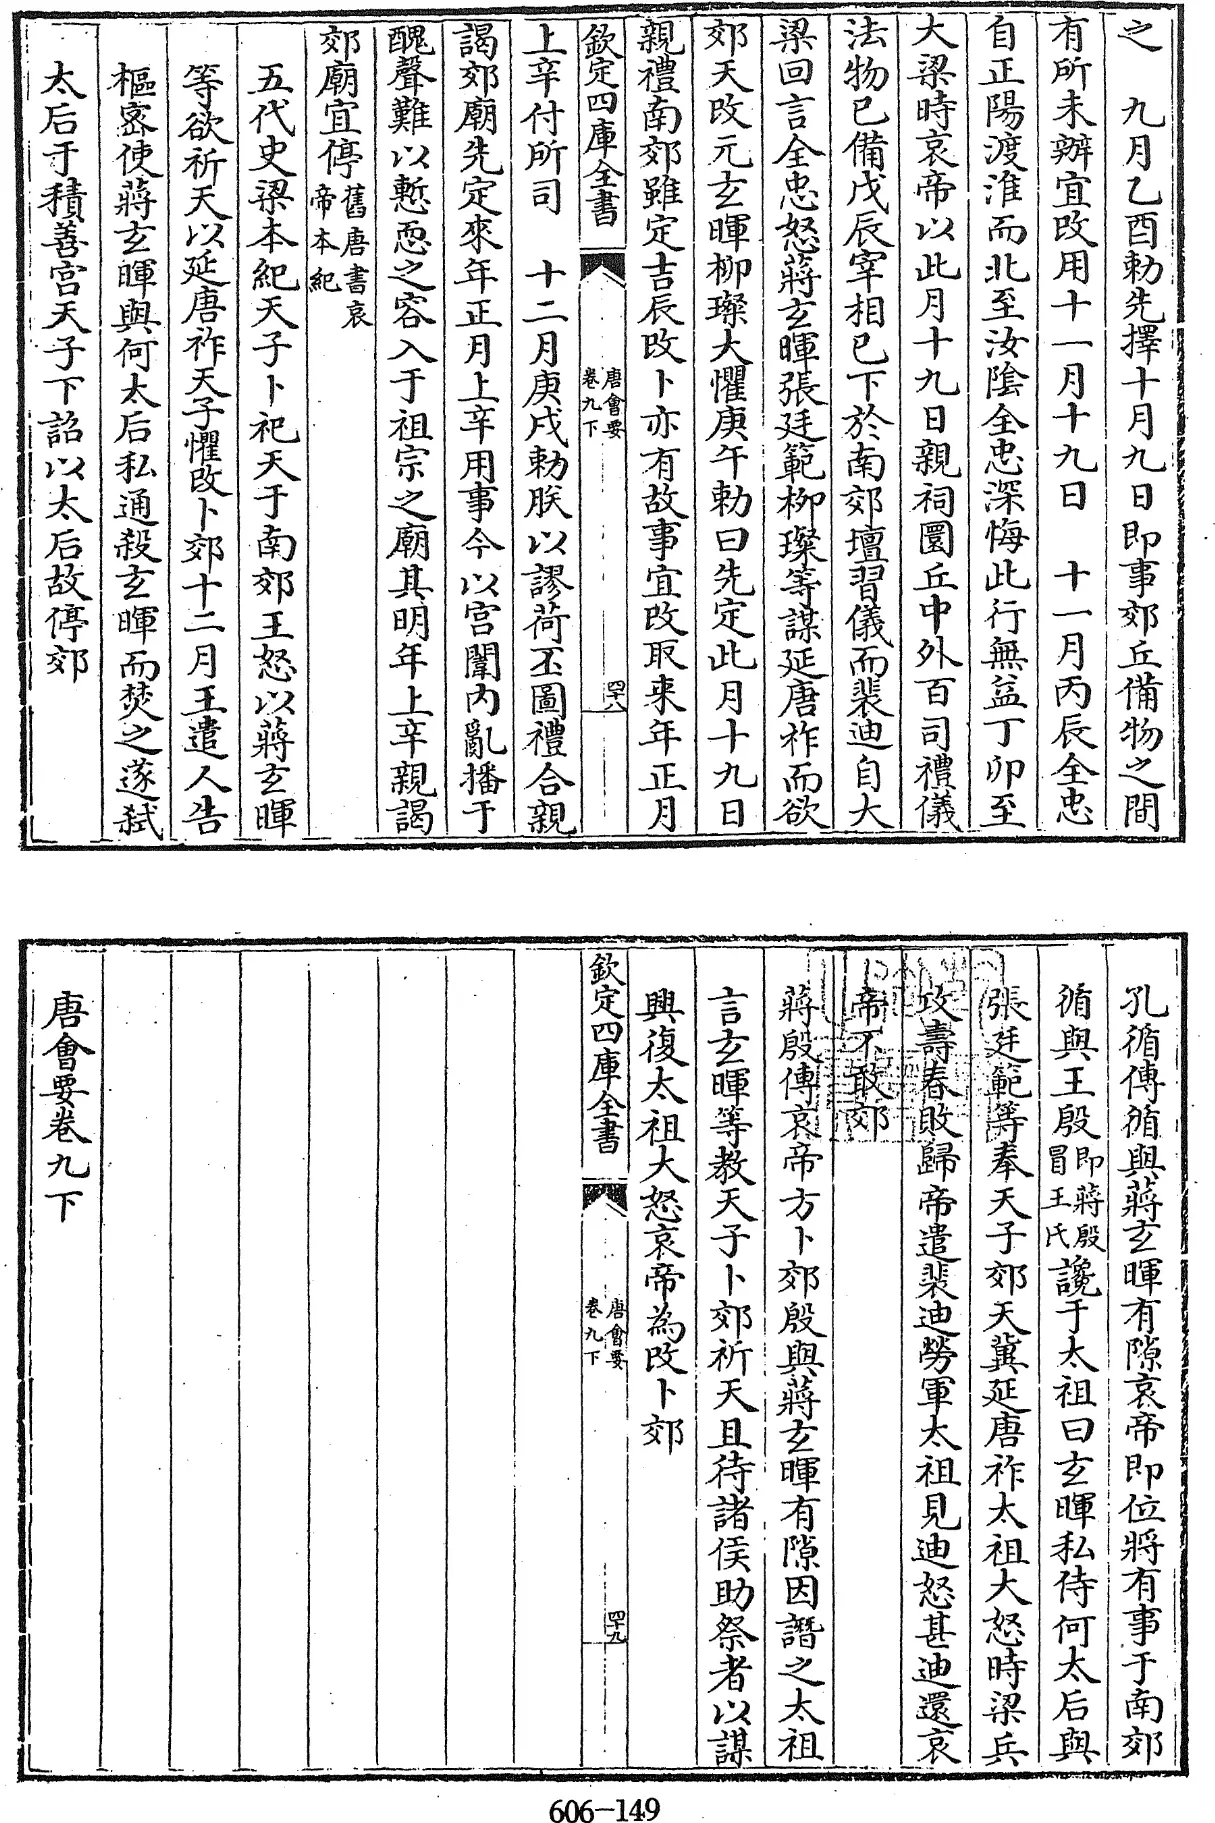 之　九月乙酉勅先擇十月九日即事郊丘備物之間
有所未辦宜改用十一月十九日　十一月丙辰全忠
自正陽渡淮而北至汝隂全忠深悔此行無益丁卯至
大梁時哀帝以此月十九日親祠圜丘中外百司禮儀
法物已備戊辰宰相已下於南郊壇習儀而裴迪自大
梁回言全忠怒蔣玄暉張廷範柳璨等謀延唐祚而欲
郊天改元玄暉柳璨大懼庚午勅曰先定此月十九日
親禮南郊雖定吉辰改卜亦有故事宜改取来年正月
欽定四庫全書
唐會要
卷九下
四十八
上辛付所司　十二月庚戌勅朕以謬荷丕圖禮合親
謁郊廟先定來年正月上辛用事今以宮闈内亂播于
醜聲難以慙恧之容入于祖宗之廟其明年上辛親謁
郊廟宜停舊唐書哀
帝本紀
五代史梁本紀天子卜祀天于南郊王怒以蔣玄暉
等欲祈天以延唐祚天子懼改卜郊十二月王遣人告
樞密使蔣玄暉與何太后私通殺玄暉而焚之遂弑
太后于積善宮天子下詔以太后故停郊
孔循傳循與蔣玄暉有隙哀帝即位將有事于南郊
循與王殷即蔣殷
冒王氏讒于太祖曰玄暉私侍何太后與
張廷範等奉天子郊天冀延唐祚太祖大怒時梁兵
攻壽春敗歸帝遣裴迪勞軍太祖見迪怒甚迪還哀
帝不敢郊
蔣殷傳哀帝方卜郊殷與蔣玄暉有隙因譖之太祖
言玄暉等教天子卜郊祈天且待諸侯助祭者以謀
興復太祖大怒哀帝為改卜郊
欽定四庫全書
唐會要
卷九下
四十九
唐會要卷九下
606-149